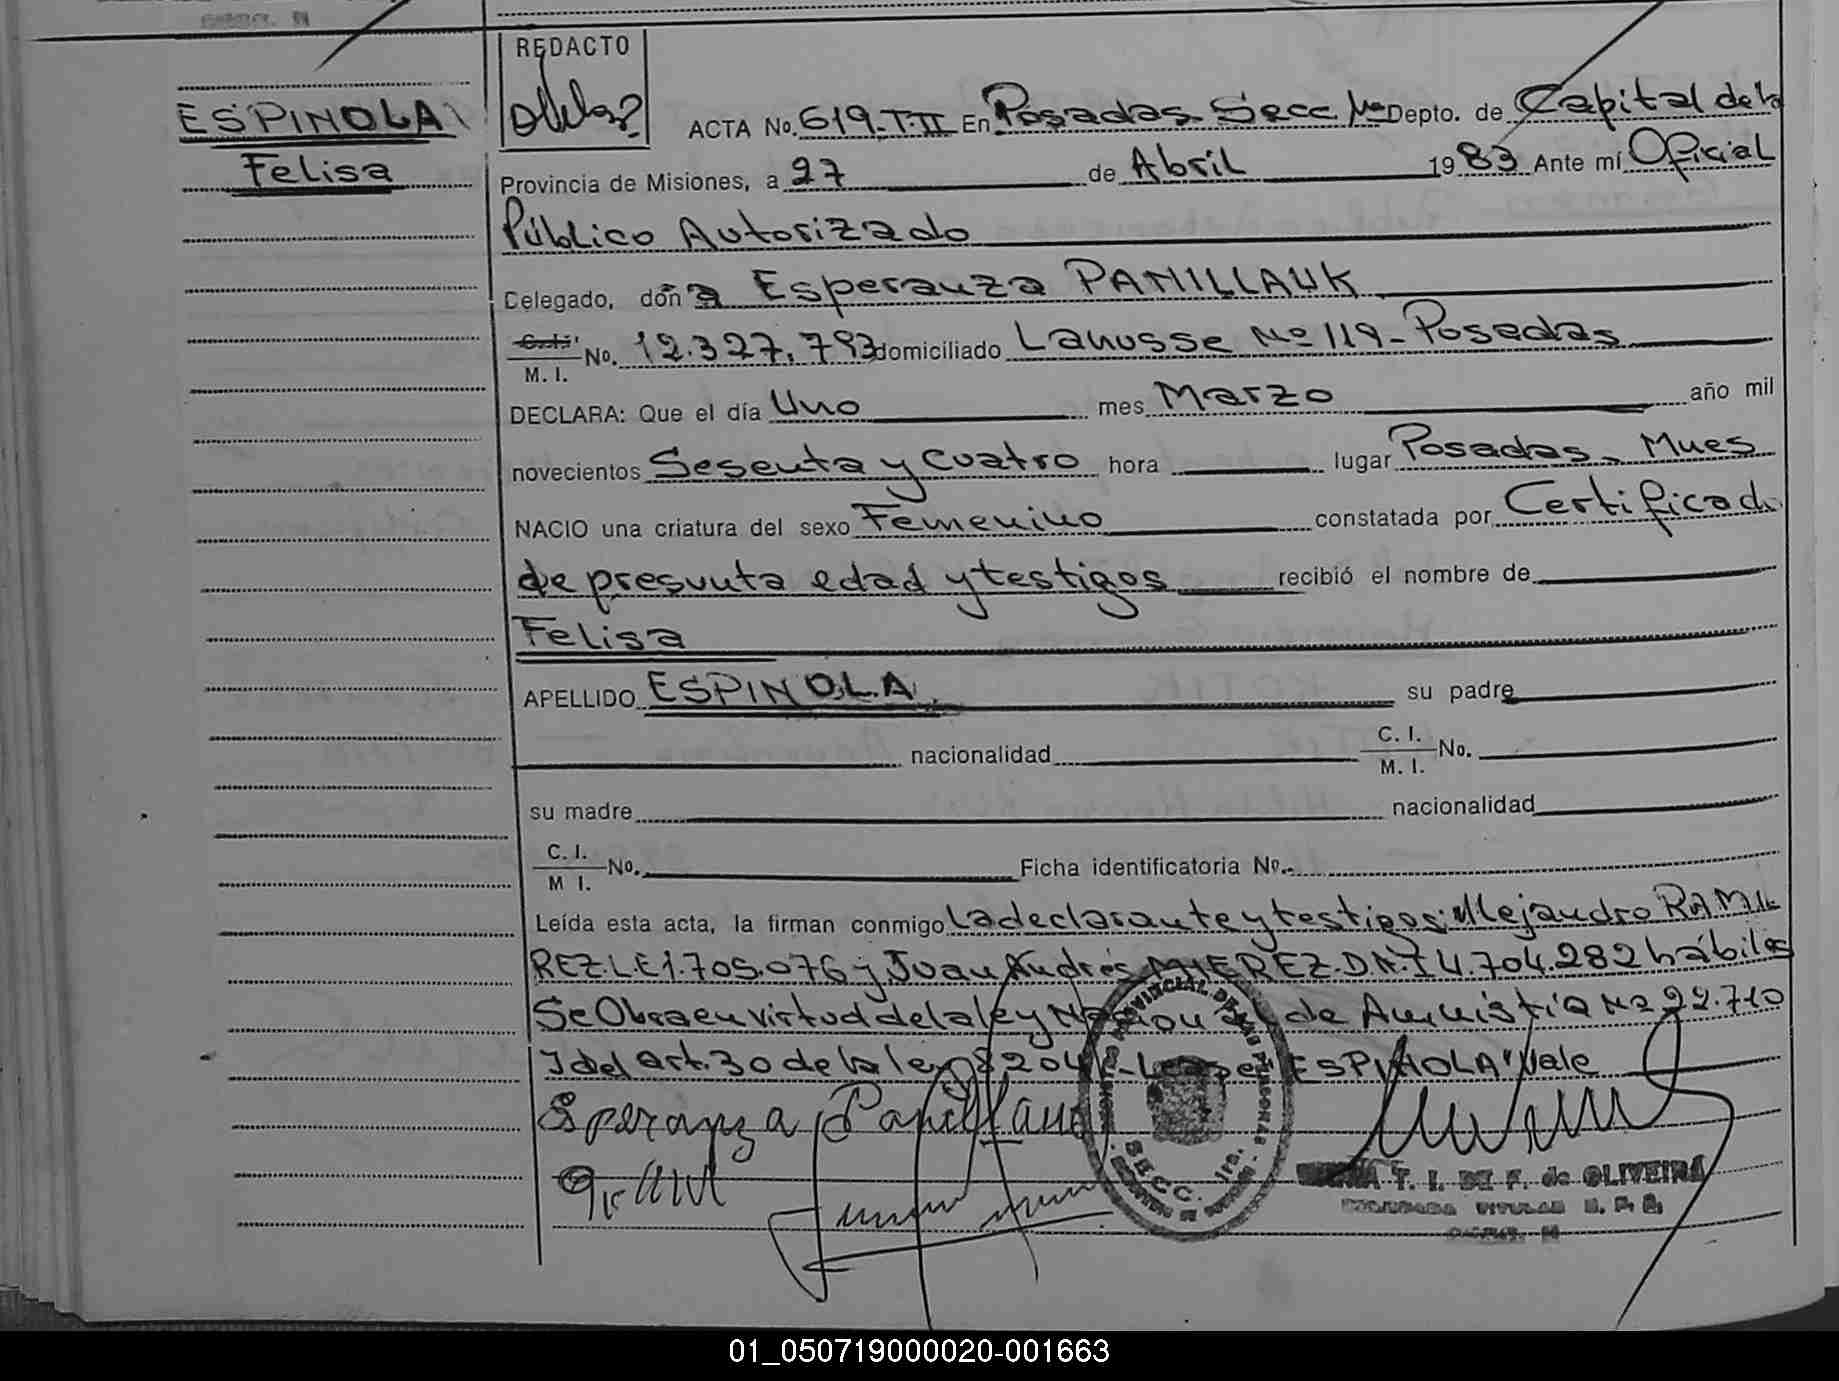 ESPINOLA
Felisa
REDACTO
ACTA No. 619-T-II En Posadas Secc 1ra Depto. de Capital de la
Provincia de Misiones, a 27 de Abril 1983 Ante mí Oficial
Público Autorizado
Celegado, doña Esperanza PANILLAUK
C. I.
M. I. No. 12.327.793 domiciliado Lanusse Nº 119-Posadas
DECLARA: Que el día Uno mes Marzo año mil
novecientos Sesenta y cuatro hora lugar Posadas Mnes
NACIO una criatura del sexo Femenino constatada por Certificado
de presunta edad y testigos recibió el nombre de
Felisa
APELLIDO ESPINOLA su padre
nacionalidad C. I.
M. I. No.
su madre nacionalidad
C. I.
M I. No. Ficha identificatoria No.
Leída esta acta, la firman conmigo La declarante y testigos: Alejandro RAMI
REZ.L.E 1.705.076 y Juan Andrés MIEREZ.D.N.I 4.704.282 hábiles
Se Obra en virtud de la ley Nacional de Amnistía Nº 22.710
y del art. 30 de la ley 8204 ESPINOLA" Vale
Esperanza Panillauk
SECC. 1ra.
T. I. DE F. de OLIVEIRA
01_050719000020-001663